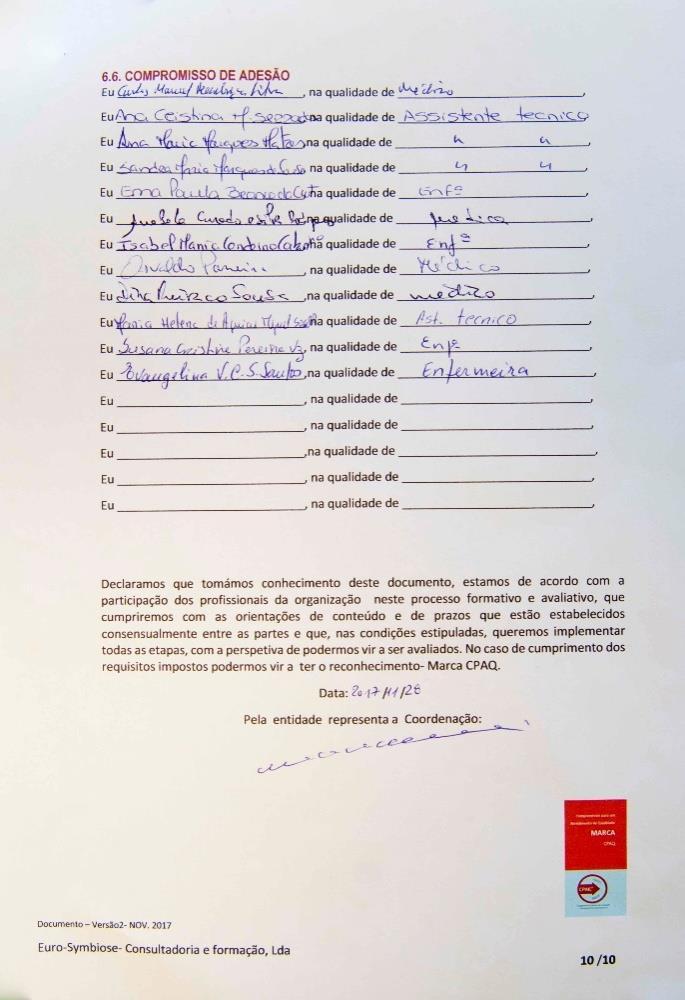 6.6. COMPROMISSO DE ADESÃO
Eu Carlos Manuel Silva, na qualidade de Médico,
Eu Ana Cristina M. na qualidade de Assistente tecnico
Eu Ana Maria Marques Matos na qualidade de " "
Eu Sandra Maria Marques de na qualidade de " "
Eu Ema Paula na qualidade de Enfª,
Eu na qualidade de Médica,
Eu Isabel Maria na qualidade de Enfª,
Eu Osvaldo na qualidade de Médico,
Eu Sousa na qualidade de médico,
Eu Maria Helena de Miguel na qualidade de Ast. tecnico,
Eu Susana Cristina Pereira Vaz, na qualidade de Enfª,
Eu Evangelina V. C. S. Santos, na qualidade de Enfermeira,
Eu , na qualidade de ,
Eu , na qualidade de ,
Eu ,na qualidade de ,
Eu , na qualidade de ,
Eu , na qualidade de ,
Declaramos que tomámos conhecimento deste documento, estamos de acordo com a
participação dos profissionais da organização neste processo formativo e avaliativo, que
cumpriremos com as orientações de conteúdo e de prazos que estão estabelecidos
consensualmente entre as partes e que, nas condições estipuladas, queremos implementar
todas as etapas, com a perspetiva de podermos vir a ser avaliados. No caso de cumprimento dos
requisitos impostos podermos vir a ter o reconhecimento- Marca CPAQ.
Data: 2017/11/28
Pela entidade representa a Coordenação:
Compromisso para um
Atendimento de Qualidade
MARCA
CPAQ
CPAQ
Documento – Versão2- NOV. 2017
Euro-Symbiose- Consultadoria e formação, Lda
10 /10